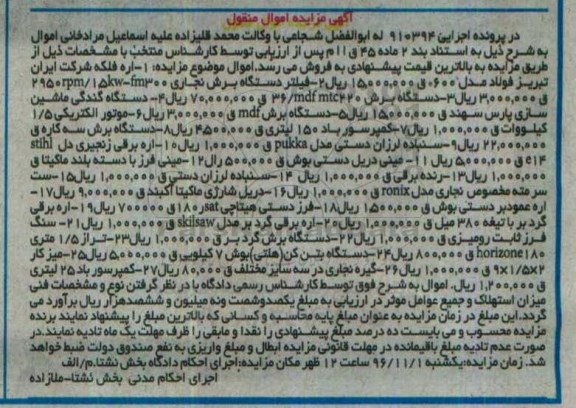 آگهی مزایده اموال منقول
در پرونده اجرایی ۹۱۰۳۹۴ له ابوالفضل شجاعی با وکالت محمد قلیزاده علیه اسماعیل مرادخانی اموال
به شرح ذیل به استناد بند ۲ ماده ۴۵ ق ا ا م پس از ارزیابی توسط کارشناس منتخب با مشخصات ذیل از
طریق مزایده به بالاترین قیمت پیشنهادی به فروش می رسد.اموال موضوع مزایده: ۱-اره فلکه شرکت ایران
تبریز فولاد مدل ۶۰۰ ق ۱۵،۰۰۰،۰۰۰ ریال۲-فیلتر دستگاه برش نجاری ۲۹۵۰rpm/۱۵kw-fm۳۰۰
ق ۳،۰۰۰،۰۰۰ ریال۳-دستگاه برش ۲۲۰ mdf mtc/۳۶ ق ۷۰،۰۰۰،۰۰۰ ریال۴-دستگاه گندگی ماشین
سازی پارس سهند ق ۱۵،۰۰۰،۰۰۰ ریال۵-دستگاه برش mdf ق ۳،۰۰۰،۰۰۰ ریال۶-موتور الکتریکی ۱/۵
کیلووات ق ۱،۰۰۰،۰۰۰ ریال۷-کمپرسور باد ۱۵۰ لیتری ق ۴۵۰۰،۰۰۰ ریال۸-دستگاه برش سه کاره ق
۲۲،۰۰۰،۰۰۰ ریال۹-سنباده لرزان دستی مدل pukka ق ۱،۰۰۰،۰۰۰ ریال۱۰-اره برقی زنجیری دل stihl
e۱۴ ق ۵،۰۰۰،۰۰۰ ریال ۱۱- مینی دریل دستی بوش ق ۵۰۰،۰۰۰ ریال۱۲-مینی فرز با دسته بلند ماکیتا ق
۱،۰۰۰،۰۰۰ ریال۱۳-رنده برقی ق ۱،۰۰۰،۰۰۰ ریال ۱۴ -سنباده لرزان دستی ق ۱،۰۰۰،۰۰۰ ریال۱۵-ست
سر مته مخصوص نجاری مدل ronix ق ۱،۰۰۰،۰۰۰ ریال۱۶-دریل شارژی ماکیتا آکبند ق ۹،۰۰۰،۰۰۰ ریال۱۷-
اره عمودبر دستی بوش ق ۱۵۰۰،۰۰۰ ریال۱۸-فرز دستی هیتاچی sat۱۸۰ ق ۷۰۰،۰۰۰ ریال۱۹-اره برقی
گرد بر با تیغه ۳۸۰ میل ق ۱،۰۰۰،۰۰۰ ریال۲۰-اره برقی گرد بر مدل skilsaw ق ۱،۰۰۰،۰۰۰ ریال۲۱- سنگ
فرز ثابت رومیزی ق ۱،۰۰۰،۰۰۰ ریال۲۲-دستگاه برش گرد بر ق ۱،۰۰۰،۰۰۰ ریال۲۳-تراز ۱/۵ متری
horizone۱۸۰ ق ۸۰۰،۰۰۰ ریال۲۴-دستگاه بتن کن(هلتی)بوش ۷ کیلویی ق ۵،۰۰۰،۰۰۰ ریال۲۵-میز کار
۹x۱/۵x۲ ق ۱،۰۰۰،۰۰۰ ریال۲۶-گیره نجاری در سه سایز مختلف ق ۸۰۰،۰۰۰ ریال۲۷-کمپرسور باد ۲۵ لیتری
ق ۱،۲۰۰،۰۰۰ ریال. اموال به شرح فوق توسط کارشناس رسمی دادگاه با در نظر گرفتن نوع و مشخصات فنی
میزان استهلاک و جمیع عوامل موثر در ارزیابی به مبلغ یکصدوشصت ونه میلیون و ششصدهزار ریال برآورد می
گردد.این مبلغ در زمان مزایده به عنوان مبلغ پایه محاسبه و کسانی که بالاترین مبلغ را پیشنهاد نمایند برنده
مزایده محسوب و می بایست ده درصد مبلغ پیشنهادی را نقدا و مابقی را ظرف مهلت یک ماه تادیه نمایند.در
صورت عدم تادیه مبلغ باقیمانده در مهلت قانونی مزایده ابطال و مبلغ واریزی به نفع صندوق دولت ضبط خواهد
شد. زمان مزایده:یکشنبه ۹۶/۱۱/۱ ساعت ۱۲ ظهر مکان مزایده:اجرای احکام دادگاه بخش نشتا.م/الف
اجرای احکام مدنی بخش نشتا-ملازاده